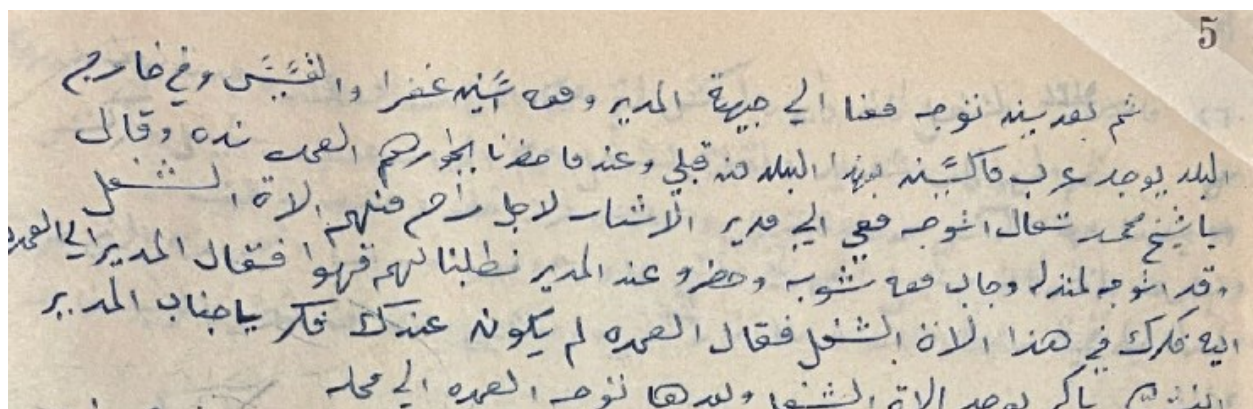 5
ثم بعد بينه نوجه معنا الي جيهة المدير ومعه اتنين غفرا والقبيسى وفي خارج
البلد يوجد عرب ماكثينه بهذا البلد من قبلي وعندما حضرنا بجوارهم العمده نده وقال
يا شيخ محمد تعال اتوجه معي الي مدير الاشار لاجل راحم منهم الاة الشغل
وقد اتوجه لمنزله وجاب معه شوبه وحضرو عند المدير نطلبنا لهم قهوا فقال المدير الي العمده
ايه فكرك في هذا الاة الشغل فقال العمده لم يكون عندك فكر يا جناب المدير
باكر يوجد الاة الشغل وبعدها توجه العمده الي محله